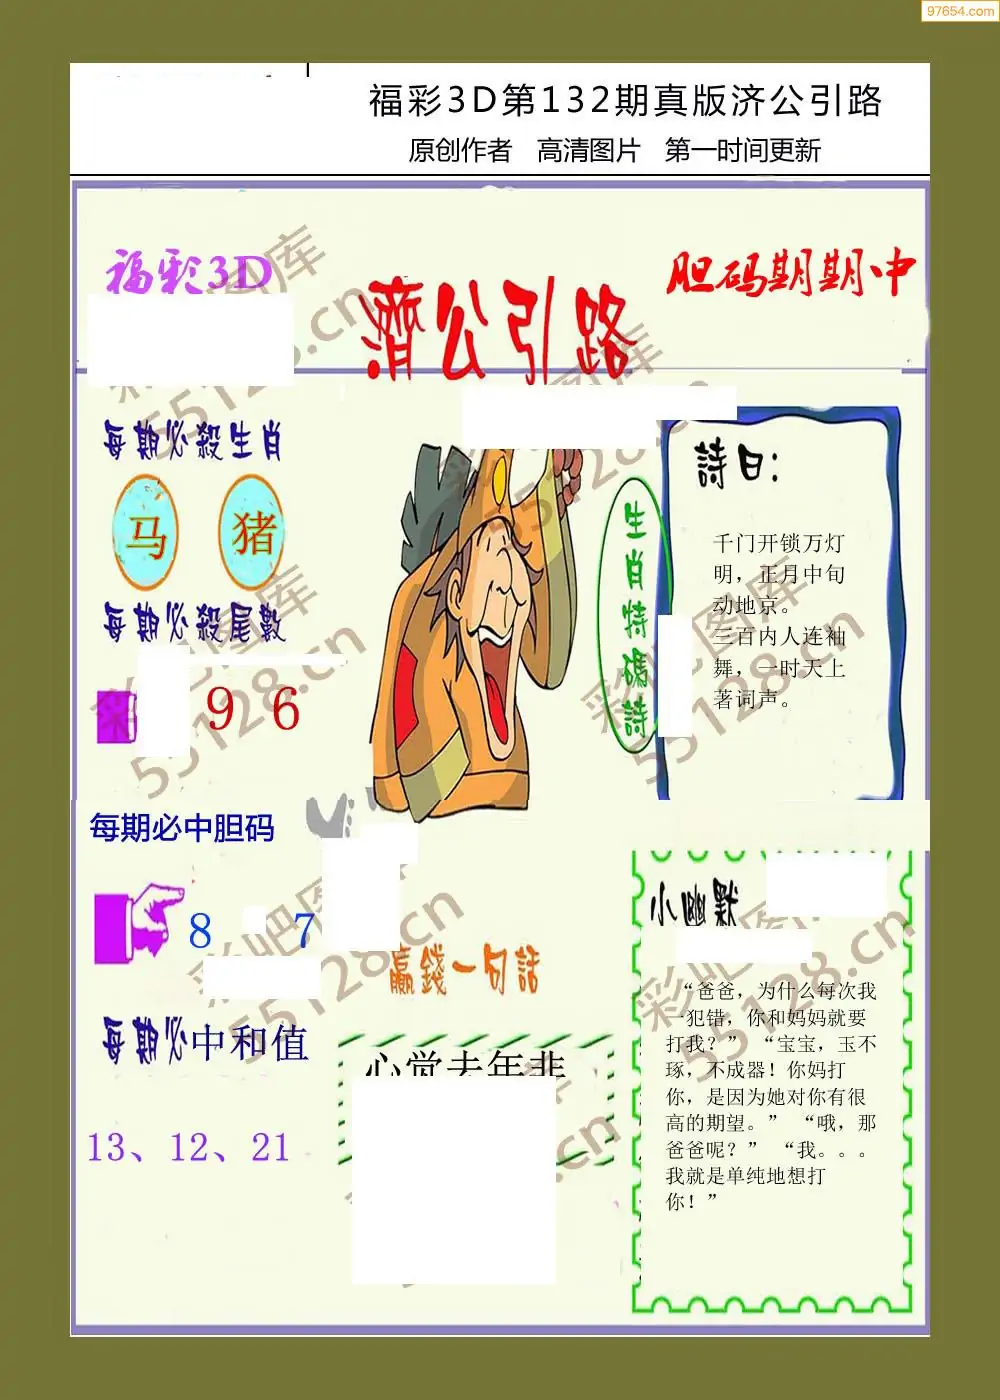 97654.com
福彩3D第132期真版济公引路
原创作者 高清图片 第一时间更新
福彩3D
濟公引路
胆码期期中
每期必殺生肖
马 猪
每期必殺尾數
9 6
生肖特碼詩
詩曰:
千门开锁万灯
明，正月中旬
动地京。
三百内人连袖
舞，一时天上
著词声。
每期必中胆码
8 7
每期必中和值
13、12、21
赢錢一句話
心觉去年非
小幽默
“爸爸，为什么每次我
一犯错，你和妈妈就要
打我？” “宝宝，玉不
琢，不成器！你妈打
你，是因为她对你有很
高的期望。” “哦，那
爸爸呢？” “我。。。
我就是单纯地想打
你！”
彩吧图库
55128.cn
彩吧图库
55128.cn
彩吧图库
55128.cn
彩吧图库
55128.cn